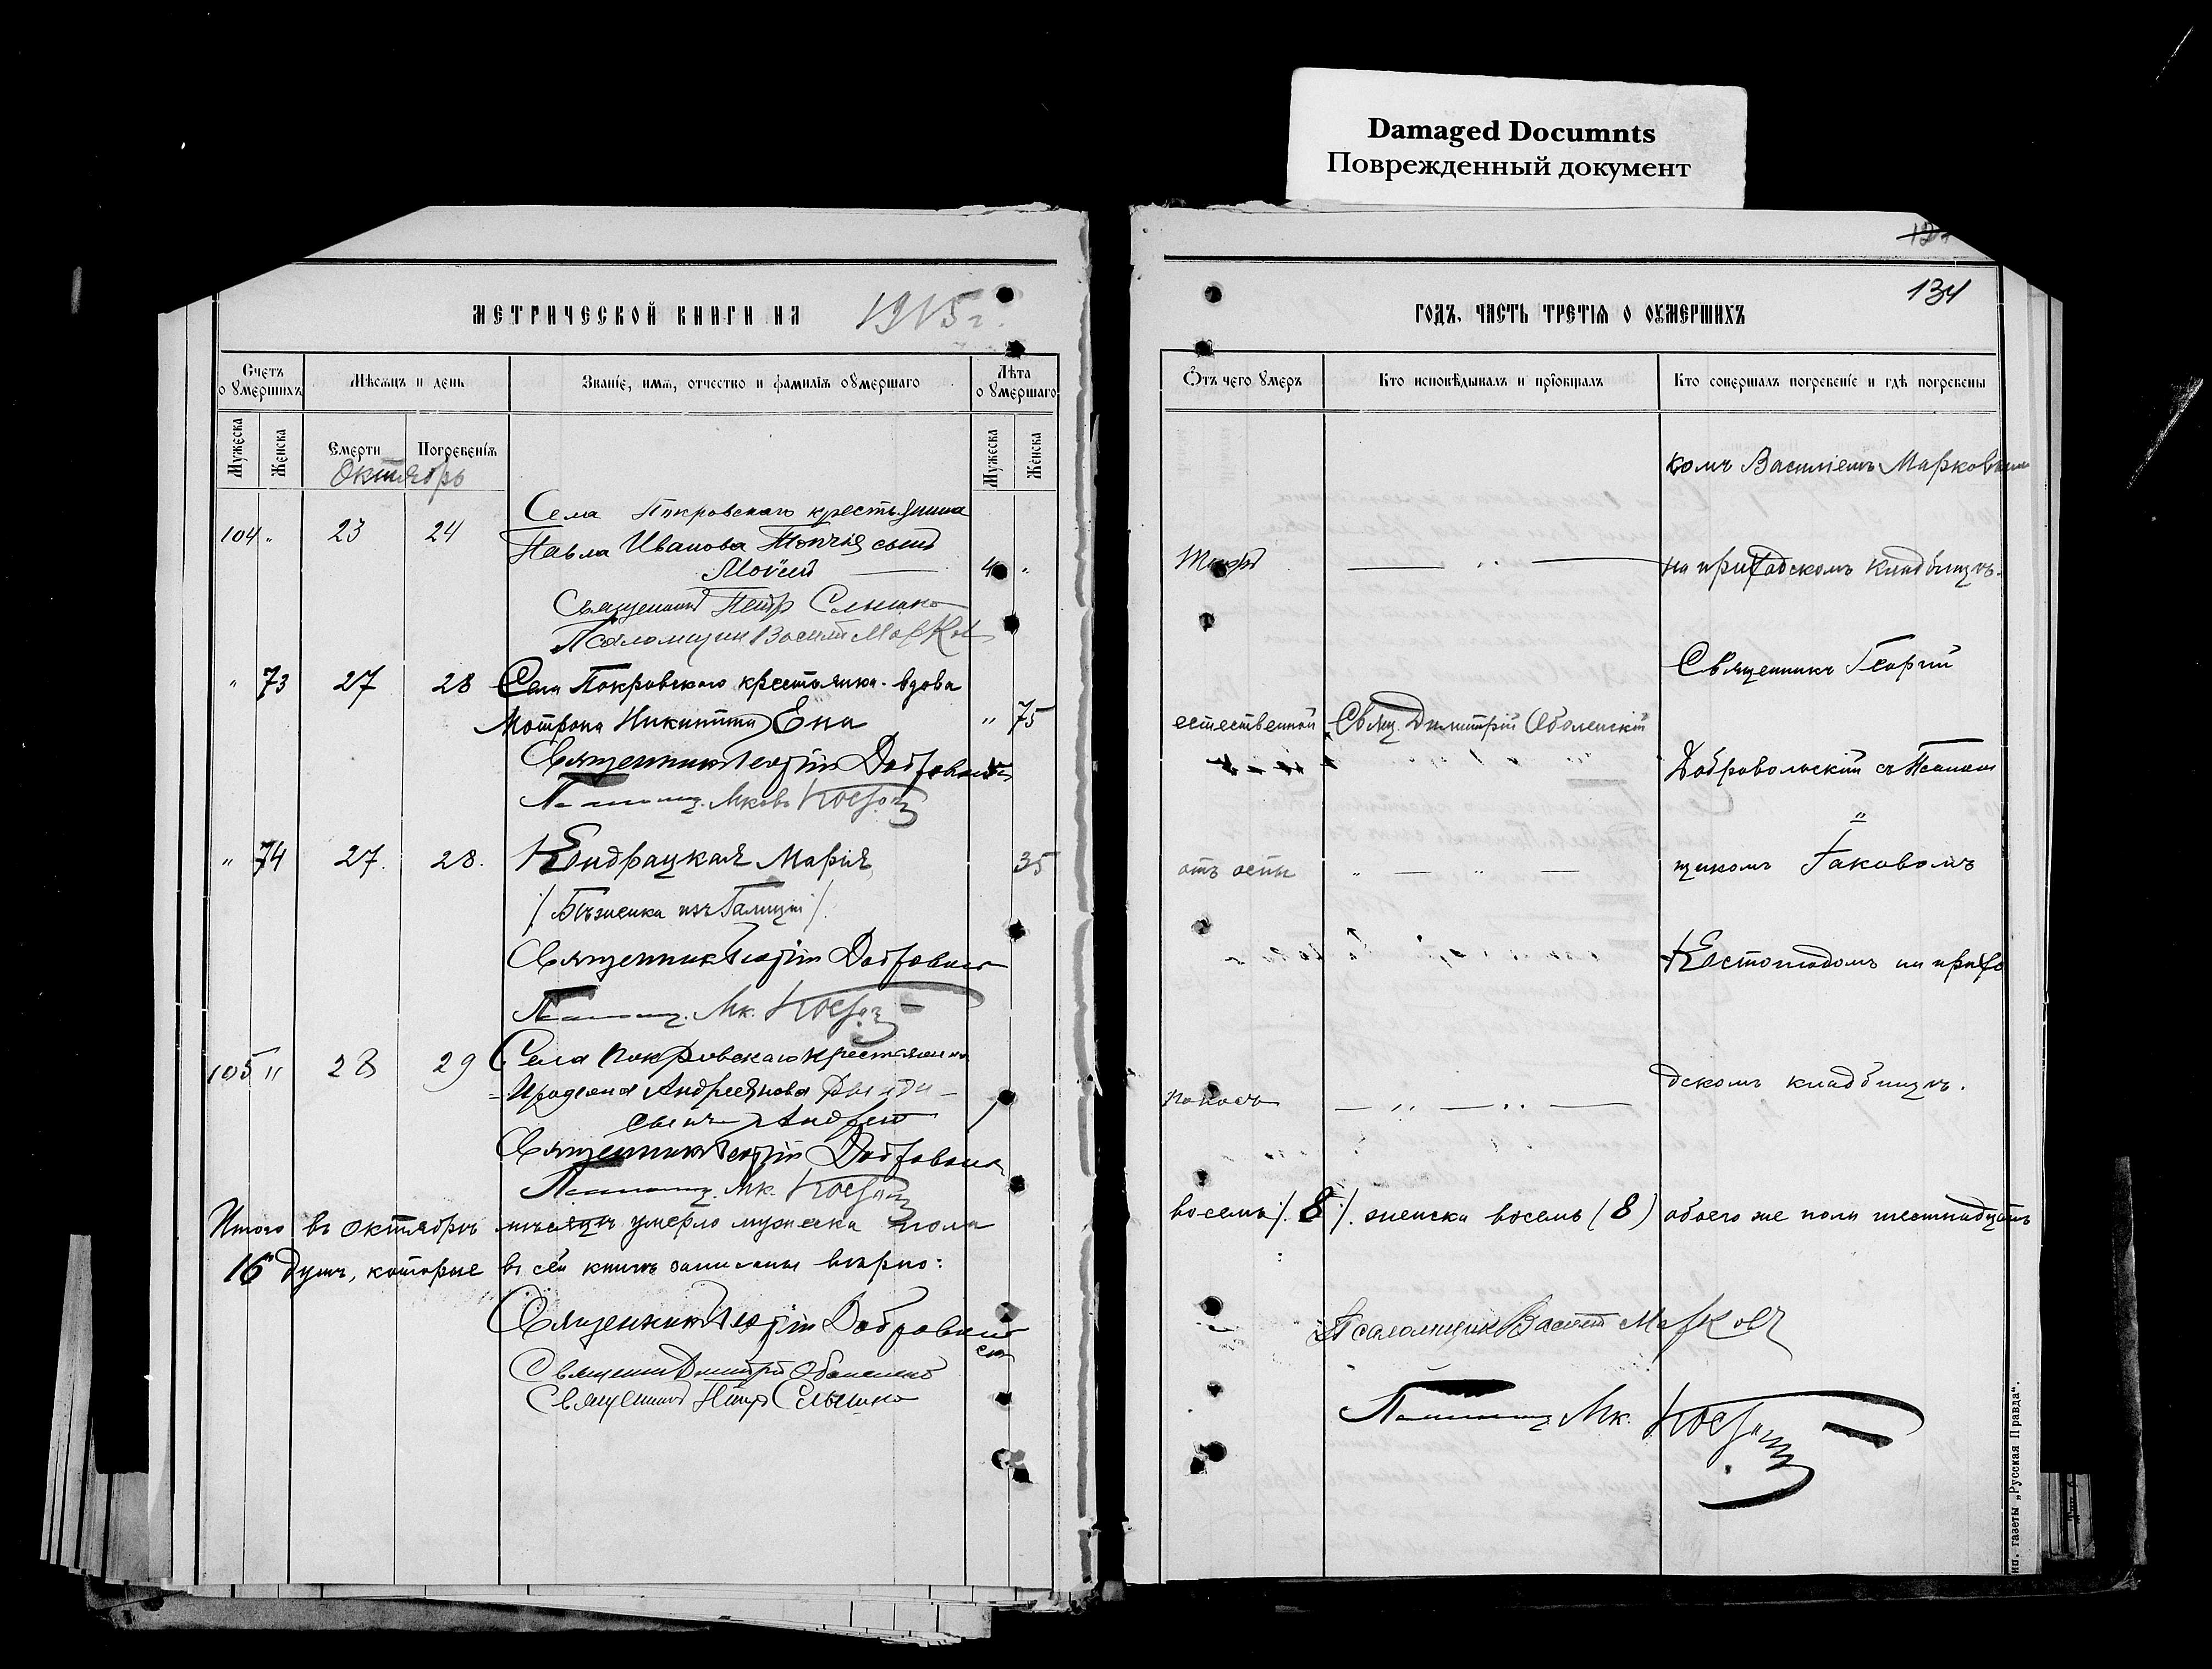 Damaged Documnts
Поврежденный документ
134
МЕТРИЧЕСКОЙ КНИГИ НА 1915 г.
Счетъ о умершихъ
Мѣсяцъ и день
Званіе, имя, отчество и фамилія умершаго
Лѣта умершаго
Мужеска
Женска
Смерти
Погребенія
Мужеска
Женска
Октябрь
104 " 23 24 Села Покровскаго крестьянина
Павла Иванова сынъ
Моисей 4 "
Священникъ Петръ
Псаломщик Василій Марков
" 73 27 28 Села Покровскаго крестьянка вдова
Мотрона Никитина Ена " 75
Священникъ Георгій Добровольскій
" 74 27. 28. Кондрацкая Марія 35
/Бѣженка изъ Галиціи/.
Священникъ Георгій
105 " 28 29 Села Покровскаго крестьянина
Андреянова
сынъ Андрей 1
Священникъ Георгій
Итого въ Октябрѣ мѣсяцѣ умерло мужеска пола
16 душъ, которые въ сей книгѣ записаны вѣрно:
Священникъ Георгій Добровольскій
Священникъ Димитрій Оболенскій
Священникъ Петръ
ГОДЪ, ЧАСТЬ ТРЕТІЯ О УМЕРШИХЪ
Отъ чего умеръ
Кто исповѣдывалъ и пріобщалъ
Кто совершалъ погребеніе и гдѣ погребены
комъ Василіемъ Марковымъ
на приходскомъ кладбищѣ.
Священникъ Георгій
естественной Свящ. Димитрій Оболенскій
Добровольскій съ Псалом
=
отъ оспы " — " — щикомъ Іаковомъ
на прихо
поносъ — " — " — дскомъ кладбищѣ.
восемь /. 8 /. женска восемь (8) обоего же пола шестнадцать
Псаломщикъ Василій Марковъ
тип. газеты „Русская Правда".